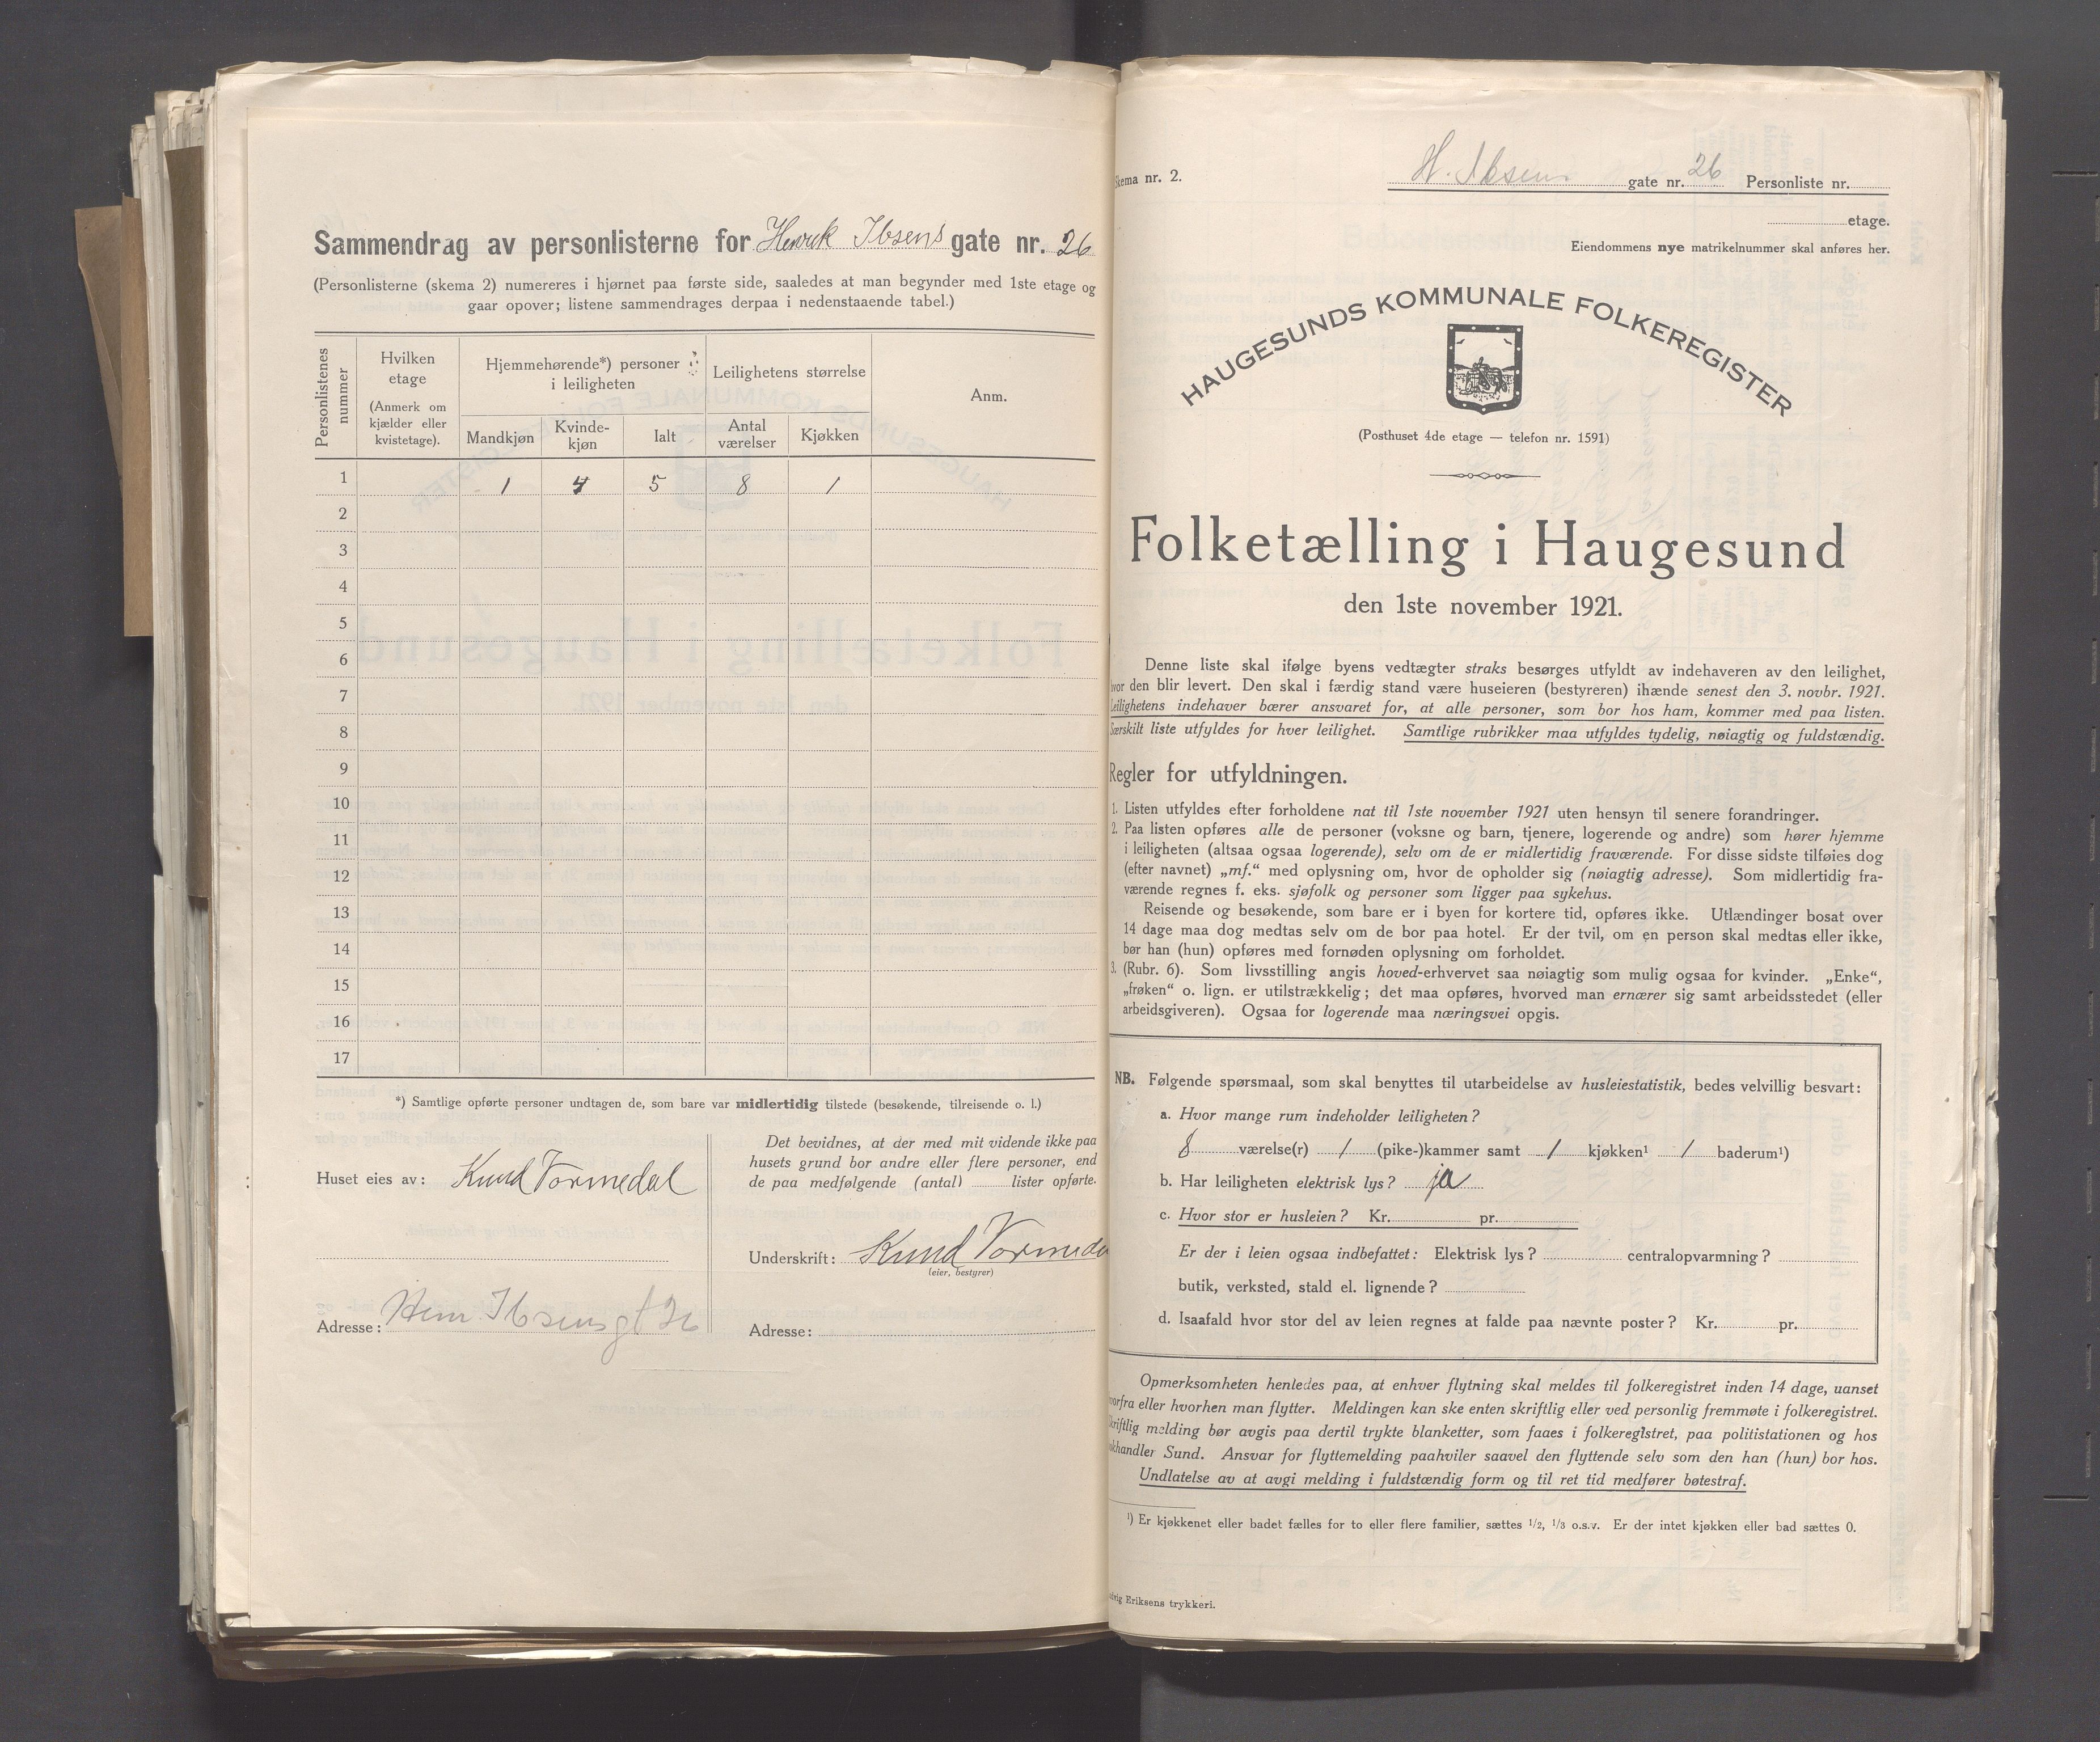 Sammendrag av personlisterne for Henrik Ibsens gate nr. 26
(Personlisterne (skema 2) numereres i hjørnet paa første side, saaledes at man begynder med 1ste etage og
gaar opover; listene sammendrages derpaa i nedenstaaende tabel.)
Personlistenes nummer
Hvilken etage (Anmerk om kjælder eller kvistetage).
Hjemmehørende*) personer i leiligheten
Leilighetens størrelse
Anm.
Mandkjøn Kvinde-kjøn Ialt Antal værelser Kjøkken
1 1 4 5 8 1
2
3
4
5
6
7
8
9
10
11
12
13
14
15
16
17
*) Samtlige opførte personer undtagen de, som bare var midlertidig tilstede (besøkende, tilreisende o. l.)
Huset eies av: Knud Vormedal
Adresse: Henr. Ibsensgt 26
Det bevidnes, at der med mit vidende ikke paa
husets grund bor andre eller flere personer, end
de paa medfølgende (antal) lister opførte.
Underskrift: Knud Vormeda
(eier, bestyrer)
Adresse:
Skema nr. 2.
H. Ibsens gate nr. 26 Personliste nr.
etage.
Eiendommens nye matrikelnummer skal anføres her.
HAUGESUNDS KOMMUNALE FOLKEREGISTER
(Posthuset 4de etage — telefon nr. 1591)
Folketælling i Haugesund
den 1ste november 1921.
Denne liste skal ifølge byens vedtægter straks besørges utfyldt av indehaveren av den leilighet,
hvor den blir levert. Den skal i færdig stand være huseieren (bestyreren) ihænde senest den 3. novbr. 1921.
Leilighetens indehaver bærer ansvaret for, at alle personer, som bor hos ham, kommer med paa listen.
Særskilt liste utfyldes for hver leilighet. Samtlige rubrikker maa utfyldes tydelig, nøiagtig og fuldstændig.
Regler for utfyldningen.
1. Listen utfyldes efter forholdene nat til 1ste november 1921 uten hensyn til senere forandringer.
2. Paa listen opføres alle de personer (voksne og barn, tjenere, logerende og andre) som hører hjemme
i leiligheten (altsaa ogsaa logerende), selv om de er midlertidig fraværende. For disse sidste tilføies dog
(efter navnet) „mf.“ med oplysning om, hvor de opholder sig (nøiagtig adresse). Som midlertidig fra-
værende regnes f. eks. sjøfolk og personer som ligger paa sykehus.
Reisende og besøkende, som bare er i byen for kortere tid, opføres ikke. Utlændinger bosat over
14 dage maa dog medtas selv om de bor paa hotel. Er der tvil, om en person skal medtas eller ikke,
bør han (hun) opføres med fornøden oplysning om forholdet.
3. (Rubr. 6). Som livsstilling angis hoved-erhvervet saa nøiagtig som mulig ogsaa for kvinder. „Enke“,
„frøken“ o. lign. er utilstrækkelig; det maa opføres, hvorved man ernærer sig samt arbeidsstedet (eller
arbeidsgiveren). Ogsaa for logerende maa næringsvei opgis.
NB. Følgende spørsmaal, som skal benyttes til utarbeidelse av husleiestatistik, bedes velvillig besvart:
a. Hvor mange rum indeholder leiligheten?
8 værelse(r) 1 (pike-)kammer samt 1 kjøkken¹ 1 baderum¹)
b. Har leiligheten elektrisk lys? ja
c. Hvor stor er husleien? Kr. pr.
Er der i leien ogsaa indbefattet: Elektrisk lys? centralopvarmning?
butik, verksted, stald el. lignende?
d. Isaafald hvor stor del av leien regnes at falde paa nævnte poster? Kr. pr.
Opmerksomheten henledes paa, at enhver flytning skal meldes til folkeregistret inden 14 dage, uanset
hvorfra eller hvorhen man flytter. Meldingen kan ske enten skriftlig eller ved personlig fremmøte i folkeregistret.
Skriftlig melding bør avgis paa dertil trykte blanketter, som faaes i folkeregistret, paa politistationen og hos
okhandler Sund. Ansvar for flyttemelding paahviler saavel den flyttende selv som den han (hun) bor hos.
Undlatelse av at avgi melding i fuldstændig form og til ret tid medfører bøtestraf.
¹) Er kjøkkenet eller badet fælles for to eller flere familier, sættes 1/2, 1/3 o.s.v. Er der intet kjøkken eller bad sættes 0.
Eriksens trykkeri.